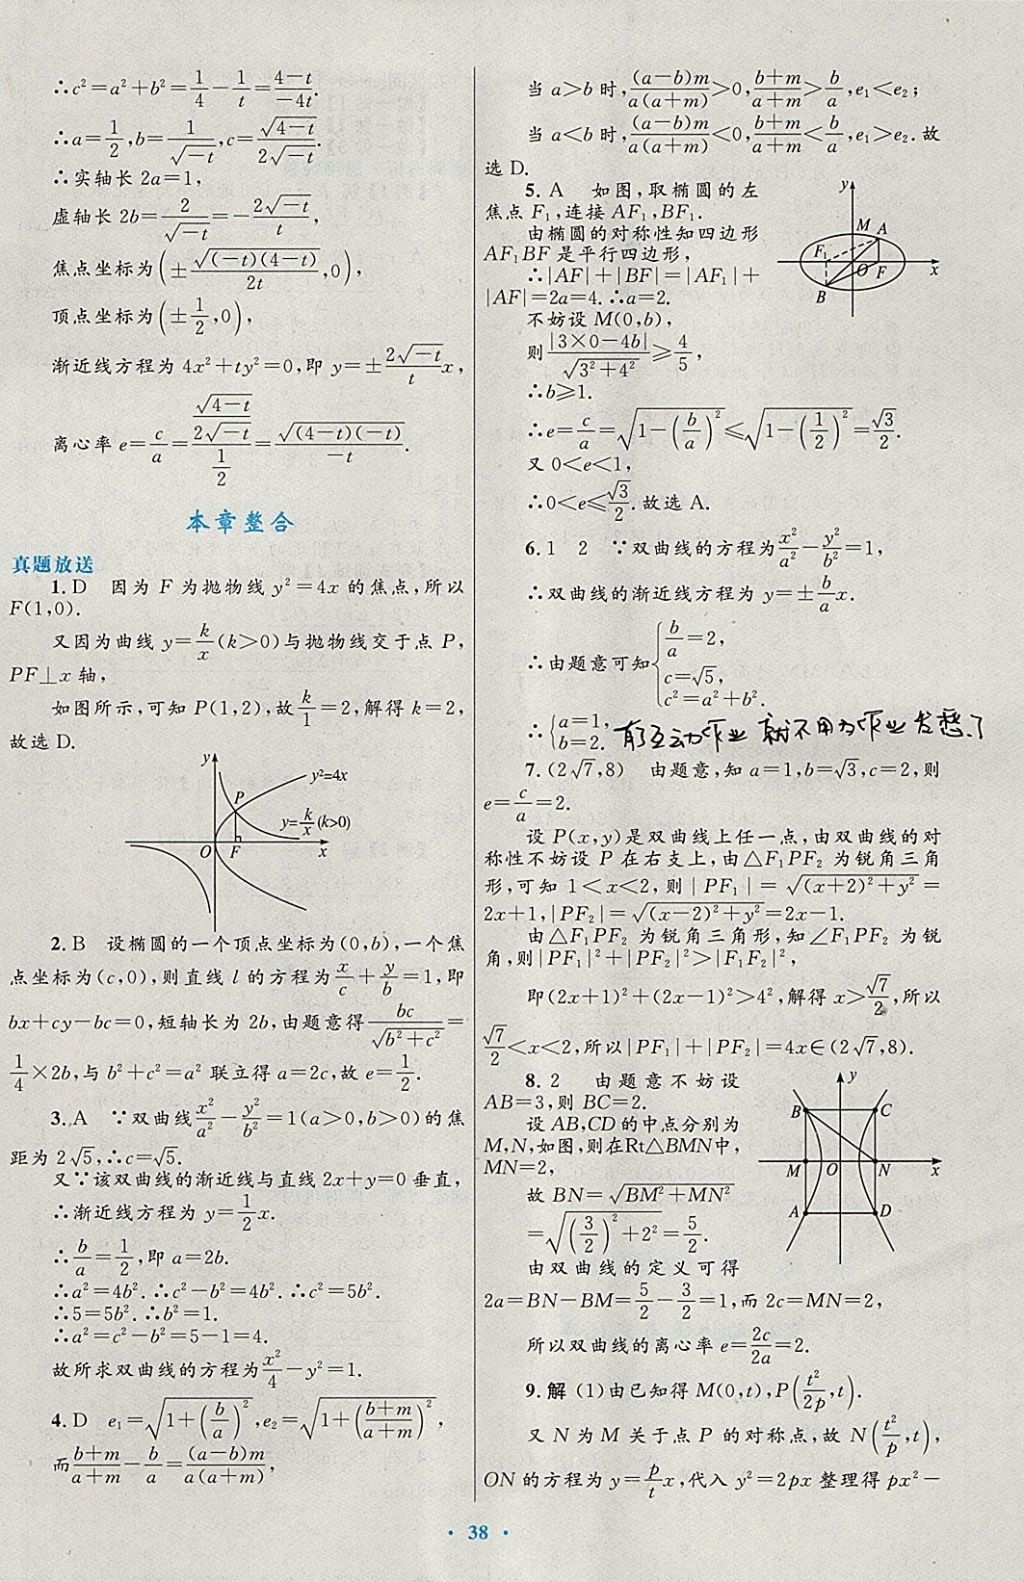 ∴c²=a²+b²=1/4-1/t=(4-t)/(-4t).
∴a=1/2,b=1/√(-t),c=√(4-t)/(2√(-t)).
∴实轴长 2a=1,
虚轴长 2b=2/√(-t)=-2√(-t)/t,
焦点坐标为(±√((-t)(4-t))/2t,0),
顶点坐标为(±1/2,0),
渐近线方程为 4x²+ty²=0,即 y=±(2√(-t)/t)x,
离心率 e=c/a=(√(4-t)/(2√(-t)))/(1/2)=√((4-t)(-t))/(-t).
本章整合
真题放送
1.D 因为 F 为抛物线 y²=4x 的焦点,所以
F(1,0).
又因为曲线 y=k/x(k>0)与抛物线交于点 P,
PF⊥x 轴,
如图所示,可知 P(1,2),故k/1=2,解得 k=2,
故选 D.
y
y²=4x
P
y=k/x(k>0)
O F x
2.B 设椭圆的一个顶点坐标为(0,b),一个焦
点坐标为(c,0),则直线 l 的方程为x/c+y/b=1,即
bx+cy-bc=0,短轴长为 2b,由题意得bc/√(b²+c²)=
1/4×2b,与 b²+c²=a² 联立得 a=2c,故 e=1/2.
3.A ∵双曲线x²/a²-y²/b²=1(a>0,b>0)的焦
距为 2√5,∴c=√5.
又∵该双曲线的渐近线与直线 2x+y=0 垂直,
∴渐近线方程为 y=1/2x.
∴b/a=1/2,即 a=2b.
∴a²=4b².∴c²-b²=4b².∴c²=5b².
∴5=5b².∴b²=1.
∴a²=c²-b²=5-1=4.
故所求双曲线的方程为x²/4-y²=1.
4.D e₁=√(1+(b/a)²),e₂=√(1+((b+m)/(a+m))²),
而(b+m)/(a+m)-b/a=(a-b)m/(a(a+m)),
当 a>b 时,(a-b)m/(a(a+m))>0,(b+m)/(a+m)>b/a,e₁<e₂;
当 a<b 时,(a-b)m/(a(a+m))<0,(b+m)/(a+m)<b/a,e₁>e₂.故
选 D.
5.A 如图,取椭圆的左
焦点 F₁,连接 AF₁,BF₁.
由椭圆的对称性知四边形
AF₁BF 是平行四边形,
∴|AF|+|BF|=|AF₁|+
|AF|=2a=4.∴a=2.
不妨设 M(0,b),
则|3×0-4b|/√(3²+4²)≥4/5,
∴b≥1.
∴e=c/a=√(1-(b/a)²)≤√(1-(1/2)²)=√3/2.
又 0<e<1,
∴0<e≤√3/2.故选 A.
y
M A
F₁
O F x
B
6.1 2 ∵双曲线的方程为x²/a²-y²/b²=1,
∴双曲线的渐近线方程为 y=±b/a x.
∴由题意可知{b/a=2,
c=√5,
c²=a²+b².
∴{a=1,
b=2.
有互动作业 就不用为作业发愁了
7.(2√7,8) 由题意,知 a=1,b=√3,c=2,则
e=c/a=2.
设 P(x,y)是双曲线上任一点,由双曲线的对
称性不妨设 P 在右支上,由△F₁PF₂ 为锐角三角
形,可知 1<x<2,则|PF₁|=√((x+2)²+y²)=
2x+1,|PF₂|=√((x-2)²+y²)=2x-1.
由△F₁PF₂ 为锐角三角形,知∠F₁PF₂ 为锐
角,则|PF₁|²+|PF₂|²>|F₁F₂|²,
即(2x+1)²+(2x-1)²>4²,解得 x>√7/2,所以
√7/2<x<2,所以|PF₁|+|PF₂|=4x∈(2√7,8).
8.2 由题意不妨设
AB=3,则 BC=2.
设 AB,CD 的中点分别为
M,N,如图,则在Rt△BMN中,
MN=2,
故 BN=√(BM²+MN²)
=√((3/2)²+2²)=5/2.
由双曲线的定义可得
2a=BN-BM=5/2-3/2=1,而 2c=MN=2,
所以双曲线的离心率 e=2c/2a=2.
y
B C
M O N x
A D
9.解 (1)由已知得 M(0,t),P(t²/2p,t).
又 N 为 M 关于点 P 的对称点,故 N(t²/p,t),
ON 的方程为 y=p/t x,代入 y²=2px 整理得 px²-
· 38 ·